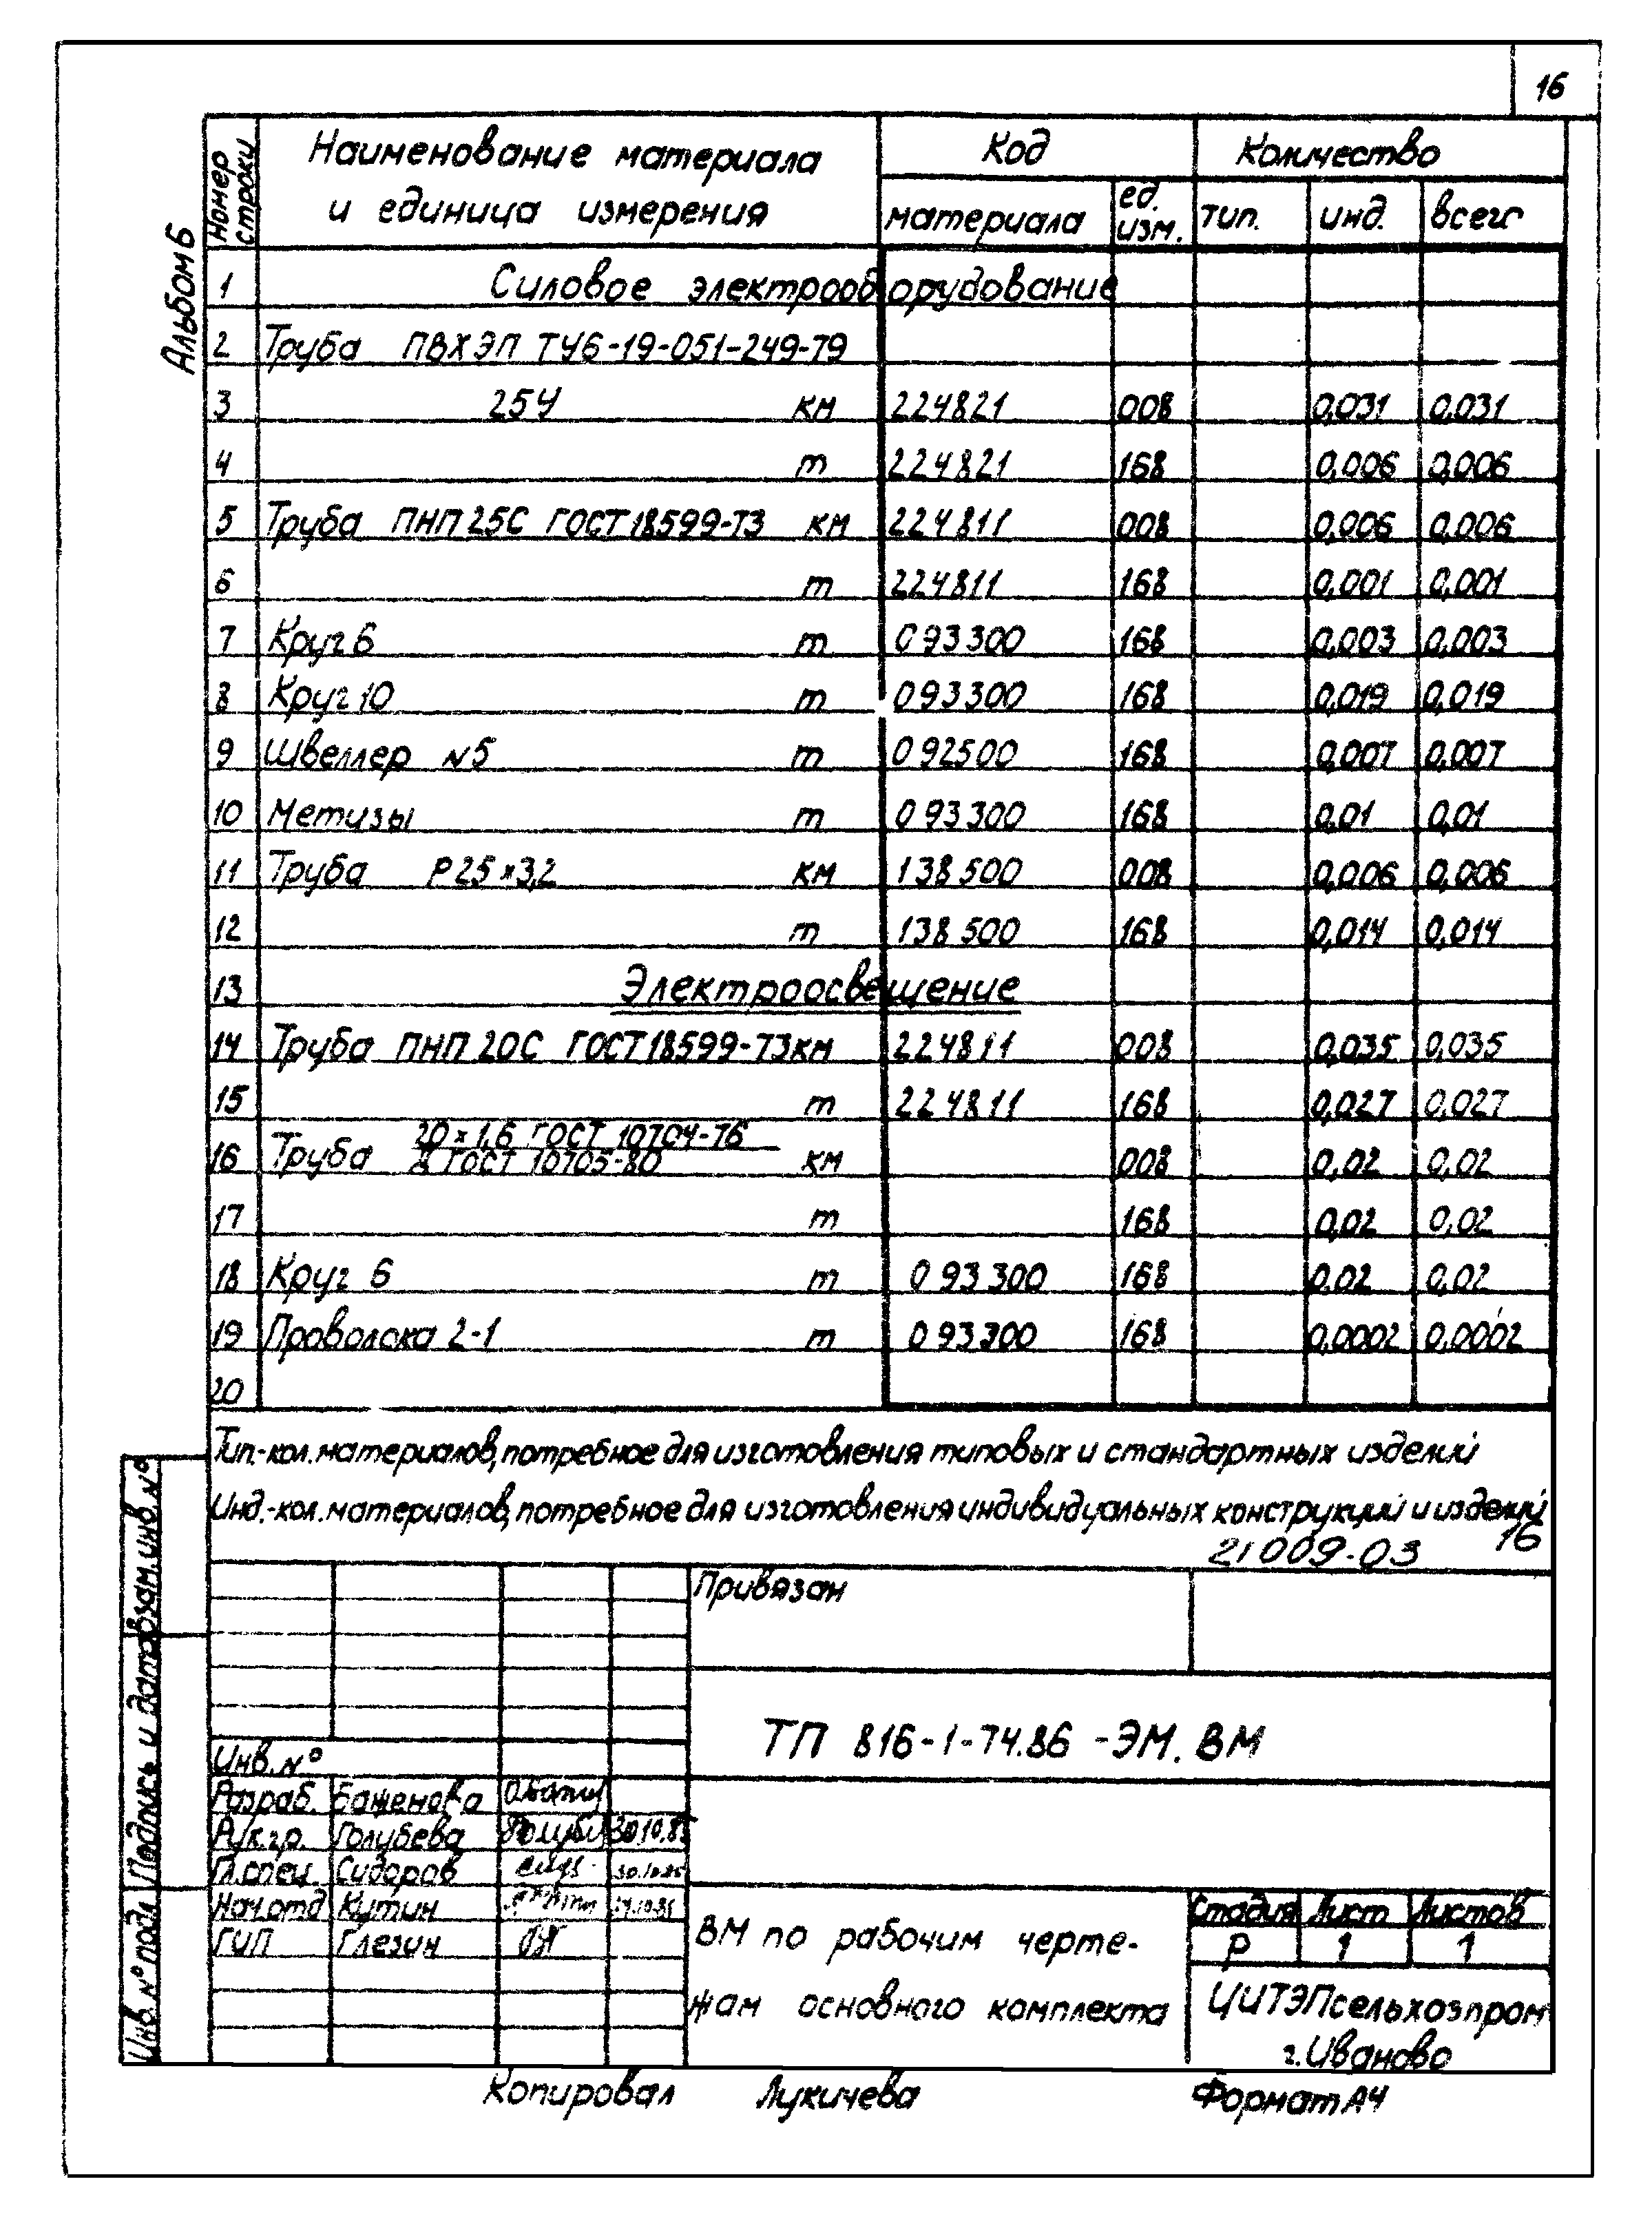 16
Альбом 6
Номер строки
Наименование материала и единица измерения
Код
Количество
материала
ед. изм.
тип.
инд.
всего
1 Силовое электрооборудование
2 Труба ПВХ ЭП ТУ6-19-051-249-79
3 25У км 224821 008 0,031 0,031
4 т 224821 168 0,006 0,006
5 Труба ПНП 25С ГОСТ 18599-73 км 224811 008 0,006 0,006
6 т 224811 168 0,001 0,001
7 Круг 6 т 093300 168 0,003 0,003
8 Круг 10 т 093300 168 0,019 0,019
9 Швеллер N5 т 092500 168 0,007 0,007
10 Метизы т 093300 168 0,01 0,01
11 Труба Р25×3,2 км 138500 008 0,006 0,006
12 т 138500 168 0,014 0,014
13 Электроосвещение
14 Труба ПНП 20С ГОСТ 18599-73 км 224811 008 0,035 0,035
15 т 224811 168 0,027 0,027
20×1,6 ГОСТ 10704-76
16 Труба Д ГОСТ 10705-80 км 008 0,02 0,02
17 т 168 0,02 0,02
18 Круг 6 т 093300 168 0,02 0,02
19 Проволока 2-1 т 093300 168 0,0002 0,0002
20
Тип.-кол. материалов, потребное для изготовления типовых и стандартных изделий
Инд.-кол. материалов, потребное для изготовления индивидуальных конструкций и изделий
21009-03 16
Привязан
ТП 816-1-74.86 -ЭМ. ВМ
Инв. N°
Разраб. Баженова
Рук.гр. Голубева 30.10.85
Гл.спец. Сидоров 30.10.85
Нач.отд Кутин
ГИП Глезин
ВМ по рабочим черте-
жам основного комплекта
Стадия Лист Листов
Р 1 1
ЦИТЭПсельхозпром
г.Иваново
Взам. инв. N°
Подпись и дата
Инв. N° подл
Копировал Лукичева Формат А4